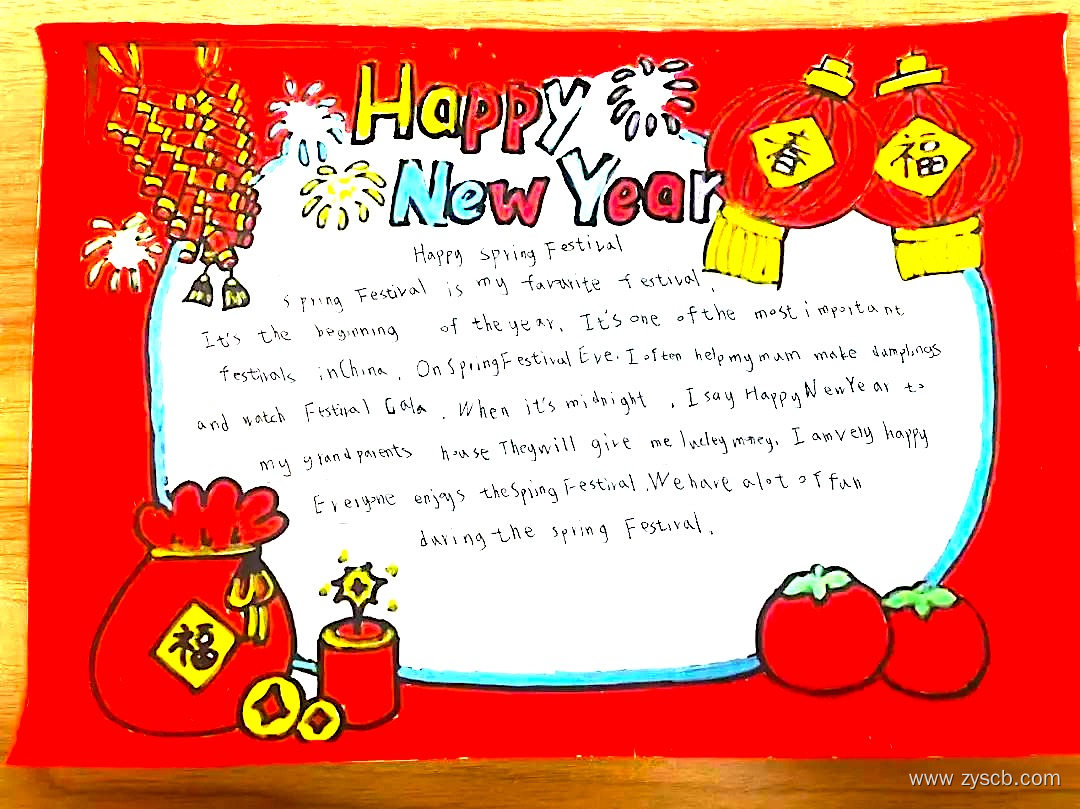 Happy
New Year
春
福
Happy Spring Festival
Spring Festival is my favarite festival.
It's the beginning of the year. It's one of the most important
festivals in China. On Spring Festival Eve. I often help my mum make dumplings
and watch Festival Gala. When it's midnight, I say Happy New Year to
my grandparents house They will give me luckey money. I am very happy
Everyone enjoys the Spring Festival. We have a lot of fun
during the spring Festival.
福
www.zyscb.com